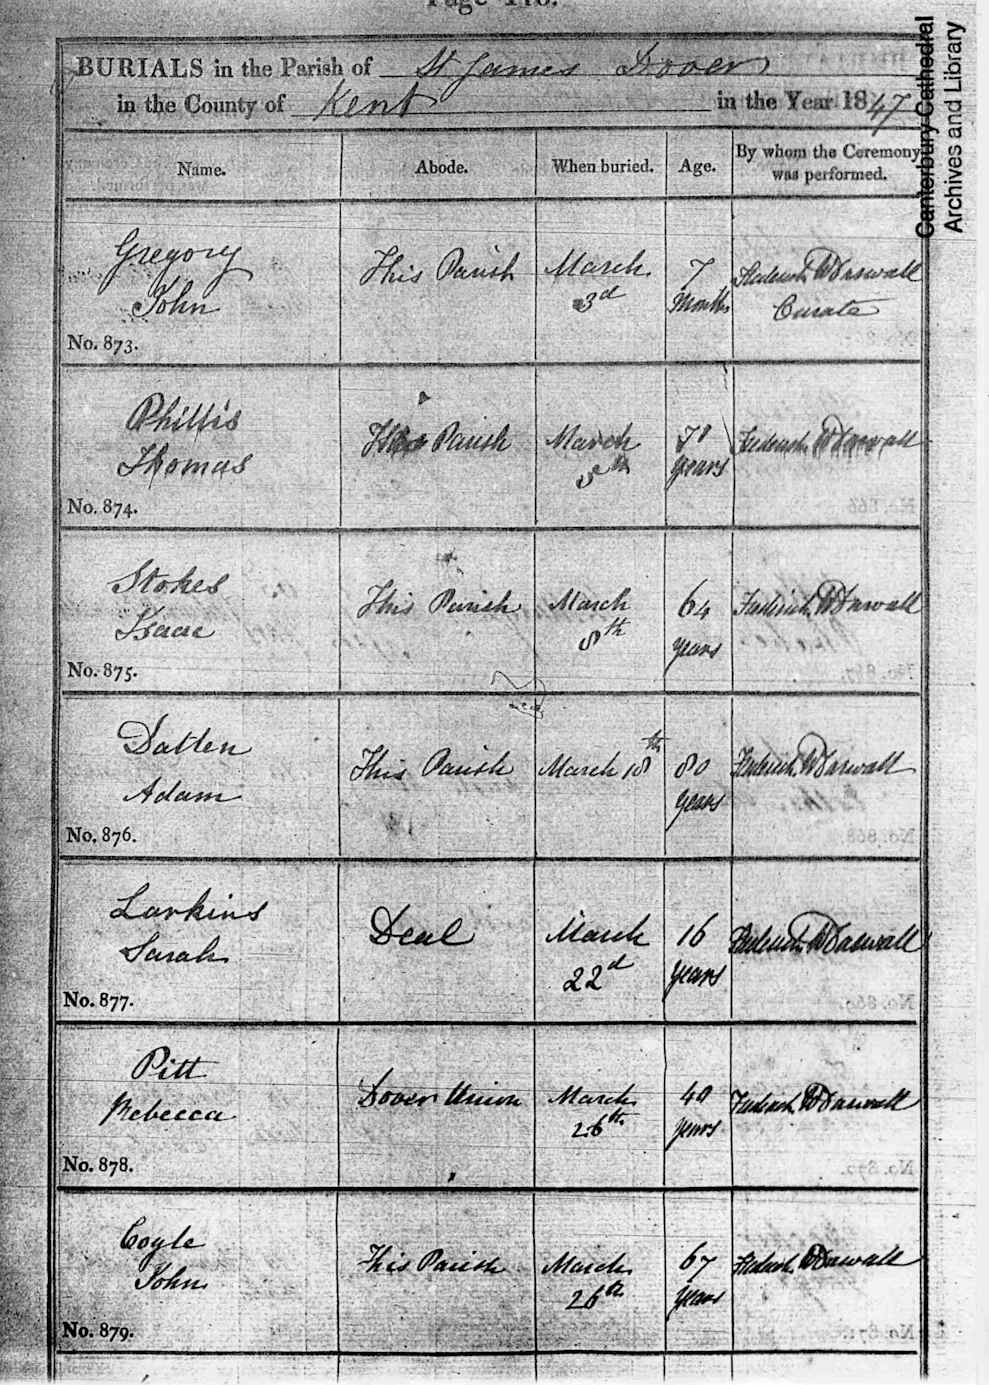 Page 110.
BURIALS in the Parish of St James Dover
in the County of Kent in the Year 1847
Name. Abode. When buried. Age. By whom the Ceremony was performed.
Gregory This Parish March 7 Frederick W Darwall
John 3d Months Curate
No. 873.
Phillis This Parish March 70 Frederick W Darwall
Thomas 5th years
No. 874.
Stokes This Parish March 64 Frederick W Darwall
Isaac 8th years
No. 875.
Datten This Parish March 18th 80 Frederick W Darwall
Adam years
No. 876.
Larkins Deal March 16 Frederick W Darwall
Sarah 22d years
No. 877.
Pitt Dover Union March 40 Frederick W Darwall
Rebecca 26th years
No. 878.
Coyle This Parish March 67 Frederick W Darwall
John 26th years
No. 879.
Canterbury Cathedral
Archives and Library